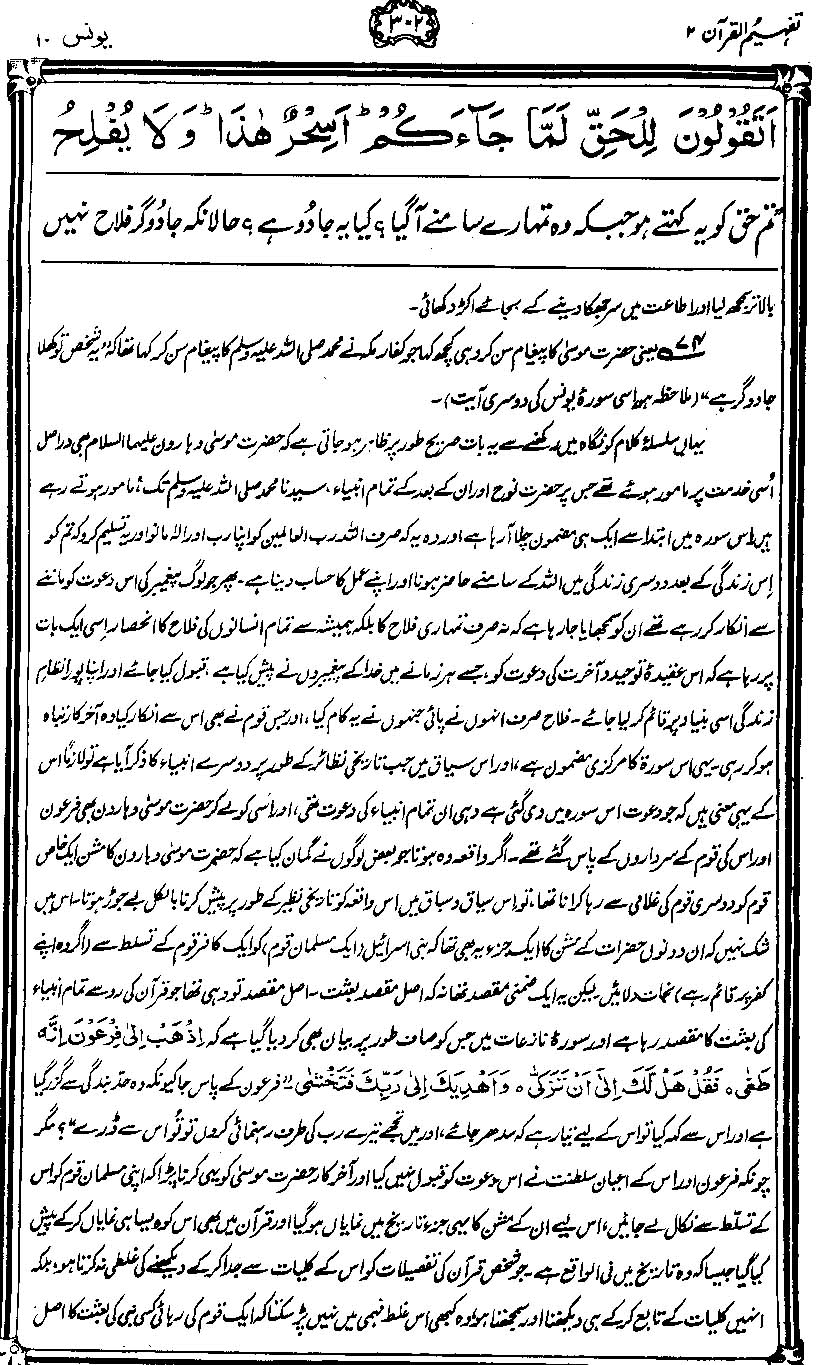 تفہیم القرآن ۲
۳۰۲
یونس ۱۰
اَتَقُوْلُوْنَ لِلْحَقِّ لَمَّا جَآءَكُمْ ؕ اَسِحْرٌ هٰذَا ؕ وَلَا يُفْلِحُ
تم حق کو یہ کہتے ہو جبکہ وہ تمہارے سامنے آگیا؟ کیا یہ جادُو ہے؟ حالانکہ جادُوگر فلاح نہیں
بالاتر سمجھ لیا اور اطاعت میں سر جھکا دینے کے بجائے اکڑ دکھائی۔
۷۴ یعنی حضرت موسیٰ کا پیغام سن کر وہی کچھ کہا جو کفار مکہ نے محمد صلی اللہ علیہ وسلم کا پیغام سن کر کہا تھا کہ ”یہ شخص تو کھلا
جادوگر ہے“ (ملاحظہ ہو اسی سورۂ یونس کی دوسری آیت)۔
یہاں سلسلۂ کلام کو نگاہ میں رکھنے سے یہ بات صریح طور پر ظاہر ہو جاتی ہے کہ حضرت موسیٰ و ہارون علیہما السلام بھی دراصل
اُسی خدمت پر مامور ہوئے تھے جس پر حضرت نوح اور ان کے بعد کے تمام انبیاء، سیدنا محمد صلی اللہ علیہ وسلم تک، مامور ہوتے رہے
ہیں۔ اس سورہ میں ابتدا سے ایک ہی مضمون چلا آ رہا ہے اور وہ یہ کہ صرف اللہ رب العالمین کو اپنا رب اور الٰہ مانو اور یہ تسلیم کرو کہ تم کو
اِس زندگی کے بعد دوسری زندگی میں اللہ کے سامنے حاضر ہونا اور اپنے عمل کا حساب دینا ہے۔ پھر جو لوگ پیغمبر کی اس دعوت کو ماننے
سے انکار کر رہے تھے ان کو سمجھایا جا رہا ہے کہ نہ صرف تمہاری فلاح کا بلکہ ہمیشہ سے تمام انسانوں کی فلاح کا انحصار اِسی ایک بات
پر رہا ہے کہ اس عقیدۂ توحید و آخرت کی دعوت کو، جسے ہر زمانے میں خدا کے پیغمبروں نے پیش کیا ہے، قبول کیا جائے اور اپنا پورا نظامِ
زندگی اسی بنیاد پر قائم کر لیا جائے۔ فلاح صرف انہوں نے پائی جنہوں نے یہ کام کیا، اور جس قوم نے بھی اس سے انکار کیا وہ آخرکار تباہ
ہو کر رہی۔ یہی اس سورۃ کا مرکزی مضمون ہے، اور اس سیاق میں جب تاریخی نظائر کے طور پر دوسرے انبیاء کا ذکر آیا ہے تو لازمًا اس
کے یہی معنی ہیں کہ جو دعوت اس سورہ میں دی گئی ہے وہی ان تمام انبیاء کی دعوت تھی، اور اُسی کو لے کر حضرت موسیٰ و ہارون بھی فرعون
اور اس کی قوم کے سرداروں کے پاس گئے تھے۔ اگر واقعہ وہ ہوتا جو بعض لوگوں نے گمان کیا ہے کہ حضرت موسیٰ و ہارون کا مشن ایک خاص
قوم کو دوسری قوم کی غلامی سے رہا کرانا تھا، تو اس سیاق و سباق میں اس واقعہ کو تاریخی نظیر کے طور پر پیش کرنا بالکل بے جوڑ ہوتا۔ اس میں
شک نہیں کہ ان دونوں حضرات کے مشن کا ایک جزء یہ بھی تھا کہ بنی اسرائیل (ایک مسلمان قوم) کو ایک کافر قوم کے تسلط سے (اگر وہ اپنے
کفر پر قائم رہے) نجات دلائیں۔ لیکن یہ ایک ضمنی مقصد تھا نہ کہ اصل مقصد بعثت۔ اصل مقصد تو وہی تھا جو قرآن کی رو سے تمام انبیاء
کی بعثت کا مقصد رہا ہے اور سورۂ نازعات میں جس کو صاف طور پر بیان بھی کر دیا گیا ہے کہ اِذْهَبْ اِلٰى فِرْعَوْنَ اِنَّهٗ
طَغٰى ۝ فَقُلْ هَلْ لَّكَ اِلٰٓى اَنْ تَزَكّٰى ۝ وَاَهْدِيَكَ اِلٰى رَبِّكَ فَتَخْشٰى ”فرعون کے پاس جا کیونکہ وہ حد بندگی سے گزر گیا
ہے اور اس سے کہہ کیا تو اس کے لیے تیار ہے کہ سدھر جائے، اور میں تجھے تیرے رب کی طرف رہنمائی کروں تو تُو اس سے ڈرے“؟ مگر
چونکہ فرعون اور اس کے اعیان سلطنت نے اس دعوت کو قبول نہیں کیا اور آخرکار حضرت موسیٰ کو یہی کرنا پڑا کہ اپنی مسلمان قوم کو اس
کے تسلط سے نکال لے جائیں، اس لیے ان کے مشن کا یہی جزء تاریخ میں نمایاں ہو گیا اور قرآن میں بھی اس کو ویسا ہی نمایاں کر کے پیش
کیا گیا جیسا کہ وہ تاریخ میں فی الواقع ہے۔ جو شخص قرآن کی تفصیلات کو اس کے کلیات سے جدا کر کے دیکھنے کی غلطی نہ کرتا ہو، بلکہ
انہیں کلیات کے تابع کر کے ہی دیکھتا اور سمجھتا ہو، وہ کبھی اس غلط فہمی میں نہیں پڑ سکتا کہ ایک قوم کی رہائی کسی نبی کی بعثت کا اصل